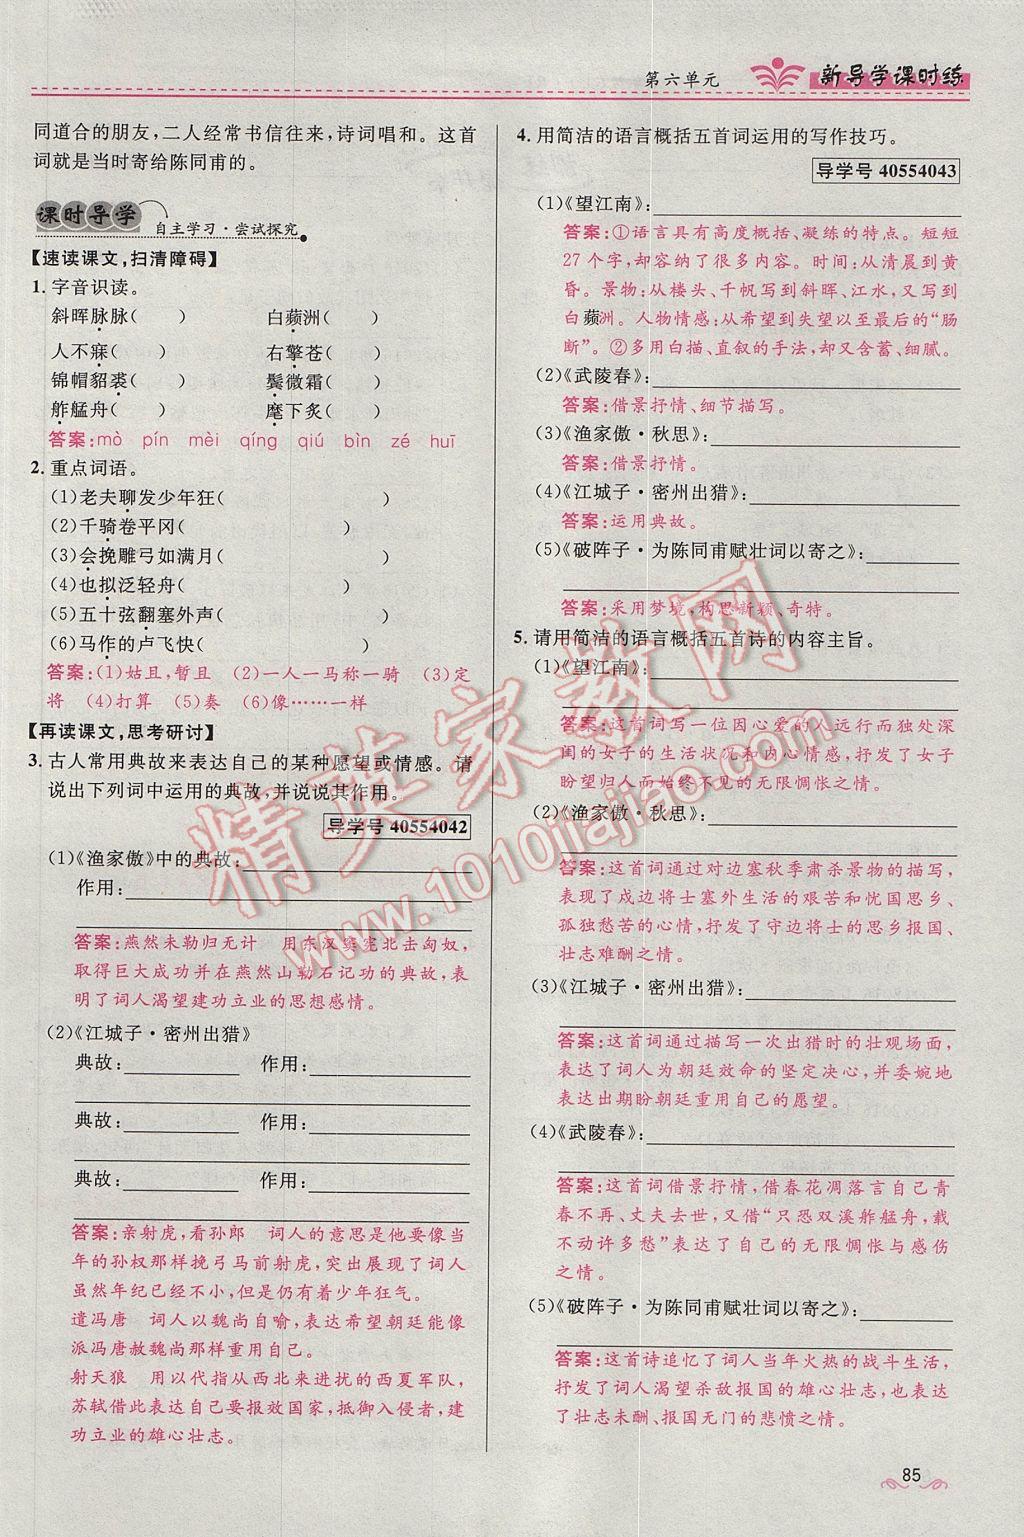 第六单元
新导学课时练
同道合的朋友,二人经常书信往来,诗词唱和。这首
词就是当时寄给陈同甫的。
课时导学
自主学习·尝试探究
【速读课文,扫清障碍】
1. 字音识读。
斜晖脉脉(    ) 白蘋洲(    )
人不寐(    ) 右擎苍(    )
锦帽貂裘(    ) 鬓微霜(    )
舴艋舟(    ) 麾下炙(    )
答案:mò pín mèi qíng qiú bìn zé huī
2. 重点词语。
(1)老夫聊发少年狂(    )
(2)千骑卷平冈(    )
(3)会挽雕弓如满月(    )
(4)也拟泛轻舟(    )
(5)五十弦翻塞外声(    )
(6)马作的卢飞快(    )
答案:(1)姑且,暂且 (2)一人一马称一骑 (3)定
将 (4)打算 (5)奏 (6)像……一样
【再读课文,思考研讨】
3. 古人常用典故来表达自己的某种愿望或情感。请
说出下列词中运用的典故,并说说其作用。
导学号 40554042
(1)《渔家傲》中的典故:
作用:
答案:燕然未勒归无计 用东汉窦宪北去匈奴,
取得巨大成功并在燕然山勒石记功的典故,表
明了词人渴望建功立业的思想感情。
(2)《江城子·密州出猎》
典故: 作用:
典故: 作用:
典故: 作用:
答案:亲射虎,看孙郎 词人的意思是他要像当
年的孙权那样挽弓马前射虎,突出展现了词人
虽然年纪已经不小,但是仍有着少年狂气。
遣冯唐 词人以魏尚自喻,表达希望朝廷能像
派冯唐赦魏尚那样重用自己。
射天狼 用以代指从西北来进扰的西夏军队,
苏轼借此表达自己要报效国家,抵御入侵者,建
功立业的雄心壮志。
4. 用简洁的语言概括五首词运用的写作技巧。
导学号 40554043
(1)《望江南》:
答案:①语言具有高度概括、凝练的特点。短短
27个字,却容纳了很多内容。时间:从清晨到黄
昏。景物:从楼头、千帆写到斜晖、江水,又写到
白蘋洲。人物情感:从希望到失望以至最后的“肠
断”。②多用白描、直叙的手法,却又含蓄、细腻。
(2)《武陵春》:
答案:借景抒情、细节描写。
(3)《渔家傲·秋思》:
答案:借景抒情。
(4)《江城子·密州出猎》:
答案:运用典故。
(5)《破阵子·为陈同甫赋壮词以寄之》:
答案:采用梦境,构思新颖、奇特。
5. 请用简洁的语言概括五首诗的内容主旨。
(1)《望江南》:
答案:这首词写一位因心爱的人远行而独处深
闺的女子的生活状况和内心情感,抒发了女子
盼望归人而始终不见的无限惆怅之情。
(2)《渔家傲·秋思》:
答案:这首词通过对边塞秋季肃杀景物的描写,
表现了戍边将士塞外生活的艰苦和忧国思乡、
孤独愁苦的心情,抒发了守边将士的思乡报国、
壮志难酬之情。
(3)《江城子·密州出猎》:
答案:这首词通过描写一次出猎时的壮观场面,
表达了词人为朝廷效命的坚定决心,并委婉地
表达出期盼朝廷重用自己的愿望。
(4)《武陵春》:
答案:这首词借景抒情,借春花凋落言自己青
春不再、丈夫去世,又借“只恐双溪舴艋舟,载
不动许多愁”表达了自己的无限惆怅与感伤
之情。
(5)《破阵子·为陈同甫赋壮词以寄之》:
答案:这首诗追忆了词人当年火热的战斗生活,
抒发了词人渴望杀敌报国的雄心壮志,也表达
了壮志未酬、报国无门的悲愤之情。
85
精英家教网
www.1010jiajiao.com